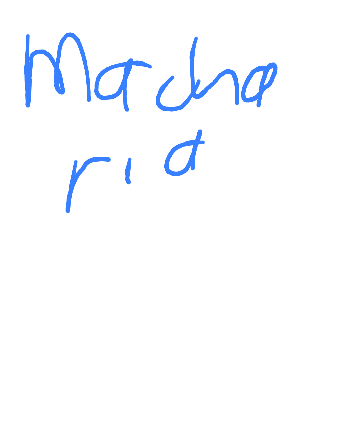 Macha
ria